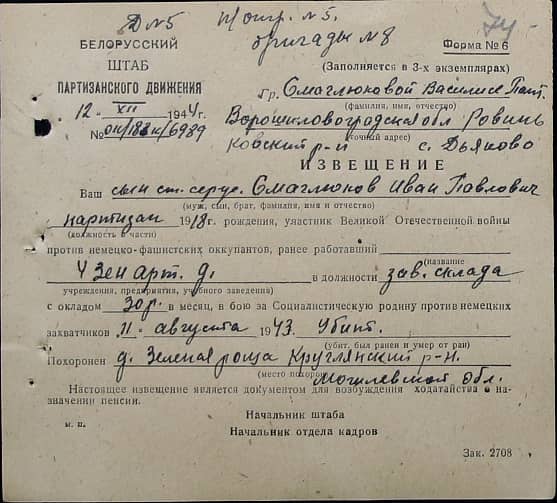 Д №5 Понр. №5. 74
бригады №8
БЕЛОРУССКИЙ
ШТАБ
ПАРТИЗАНСКОГО ДВИЖЕНИЯ
12 XII 1944 г.
№ он/183к/6989
Форма № 6
(Заполняется в 3-х экземплярах)
Гр. Смаглюковой Василисе Пант.
(фамилия, имя, отчество)
Ворошиловоградская обл Ровинь
(точный адрес)
ковский р-н с. Дьяково
ИЗВЕЩЕНИЕ
Ваш сын ст. серж. Смаглюков Иван Павлович
(муж, сын, брат, фамилия, имя и отчество)
партизан 1918 г. рождения, участник Великой Отечественной войны
(должность в части)
против немецко-фашистских оккупантов, ранее работавший
(название
4 Зен арт. д. в должности зав. склада
учреждения, предприятия, учебного заведения)
с окладом 30 р. в месяц, в бою за Социалистическую родину против немецких
захватчиков 11 августа 1943 убит.
(убит. был ранен и умер от ран)
Похоронен д. Зеленая роща Круглянский р-н.
(место похорон) Могилевской обл.
Настоящее извещение является документом для возбуждения ходатайства о на-
значении пенсии.
Начальник штаба
м. п. Начальник отдела кадров
Зак. 2708